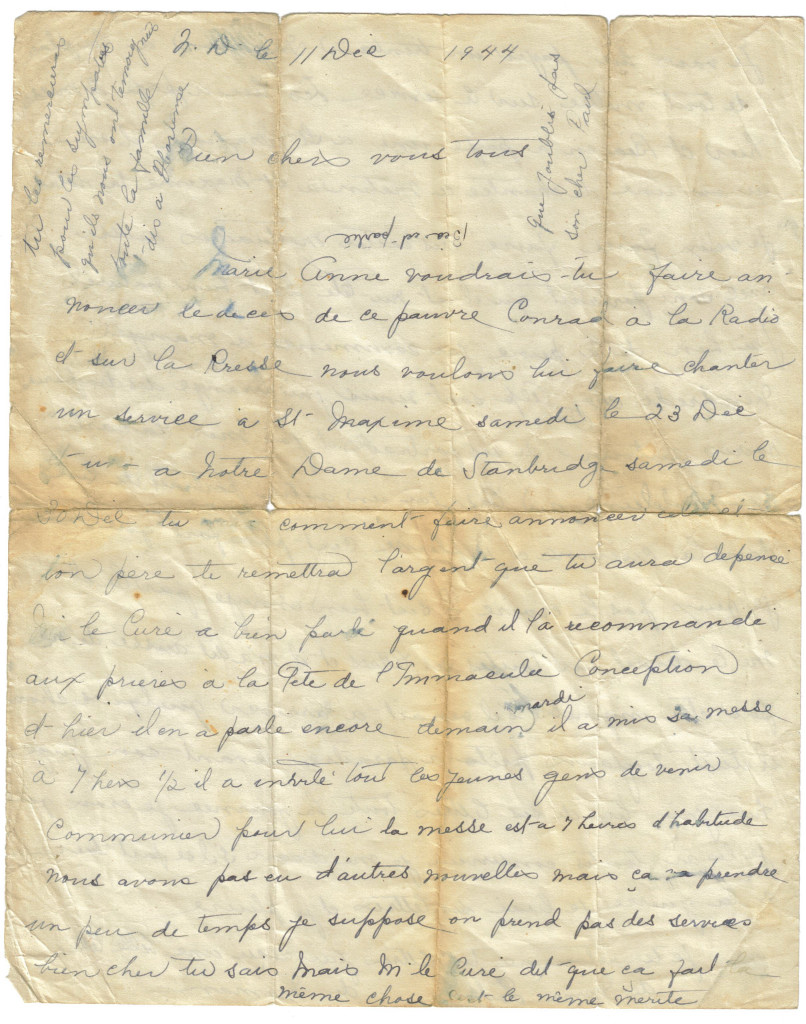 N. D. le 11 Déc 1944
Bien chers vous tous
Marie Anne voudrais-tu faire an-
noncer le deces de ce pauvre Conrad à la Radio
et sur la Presse nous voulons lui faire chanter
un service à St Maxime samedi le 23 Déc
et un a Notre Dame de Stanbridge samedi le
30 Déc tu comment faire annoncer et
ton père te remettra l'argent que tu aura depensé
le Curé a bien parlé quand il l'a recommandé
aux prieres à la Fête de l'Immaculée Conception
et hier il en a parlé encore demain mardi il a mis sa messe
à 7 hers 1/2 il a invité tout les jeunes gens de venir
Communier pour lui la messe est a 7 heures d'habitude
nous avons pas eu d'autres nouvelles mais ça va prendre
un peu de temps je suppose on prend pas des services
bien cher tu sais Mais M. le Curé dit que ça fait la
même chose c'est le même mérite
tu les remerciras
pour les sympaties
qu'ils nous ont temoignés
toute la famille
dis a
que j'oublis pas
son cher Paul